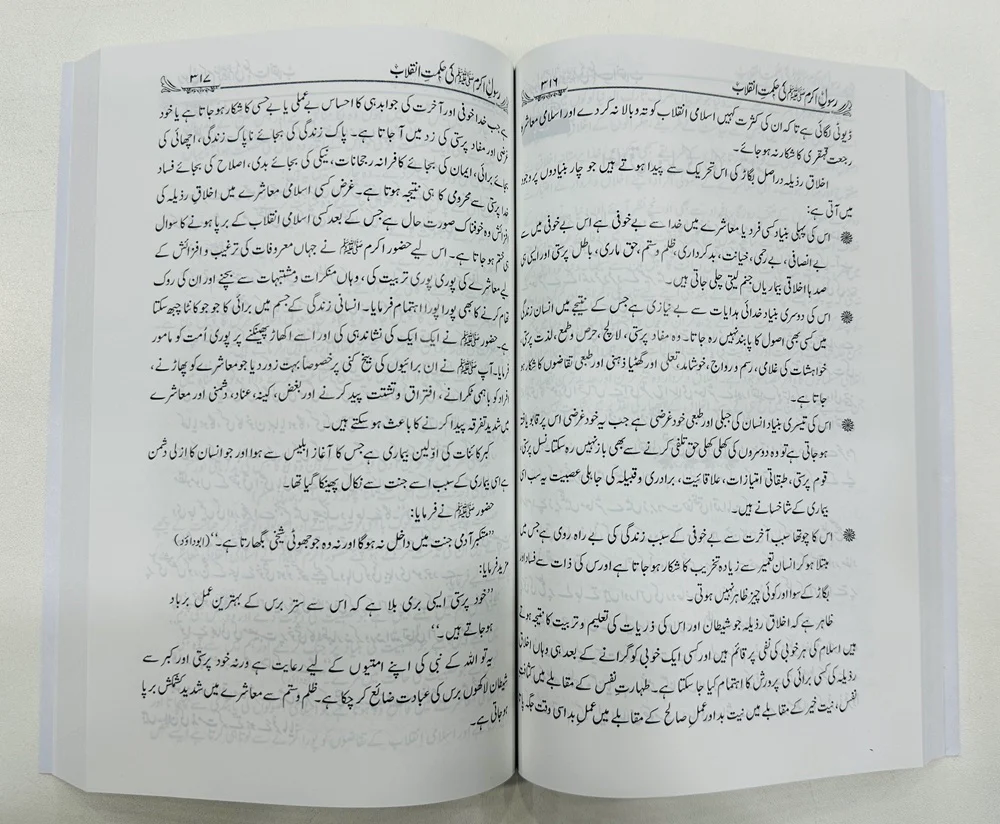 رسولِ اکرم ﷺ کی حکمتِ انقلاب ۳۱۶
ڈیوٹی لگائی ہے تاکہ ان کی کثرت کہیں اسلامی انقلاب کو تہ و بالا نہ کر دے اور اسلامی معاشرہ
رجعت قہقری کا شکار نہ ہو جائے۔
اخلاق رذیلہ دراصل بگاڑ کی اس تحریک سے پیدا ہوتے ہیں جو چار بنیادوں پر وجود
میں آتی ہے:
اس کی پہلی بنیاد کسی فرد یا معاشرے میں خدا سے بے خوفی ہے اس بے خوفی میں سے
بے انصافی، بے رحمی، خیانت، بدکرداری، ظلم و ستم، حق ماری، باطل پرستی اور ایسی ہی
صدہا اخلاقی بیماریاں جنم لیتی چلی جاتی ہیں۔
اس کی دوسری بنیاد خدائی ہدایات سے بے نیازی ہے جس کے نتیجے میں انسان زندگی
میں کسی بھی اصول کا پابند نہیں رہ جاتا۔ وہ مفاد پرستی، لالچ، حرص و طمع، لذت پرستی،
خواہشات کی غلامی، رسم و رواج، خوشامد، تعلی اور گھٹیا ذہنی اور طبعی تقاضوں کا شکار ہو
جاتا ہے۔
اس کی تیسری بنیاد انسان کی جبلی اور طبعی خود غرضی ہے جب یہ خود غرضی اس پر قابو یافتہ
ہو جاتی ہے تو وہ دوسروں کی کھلی کھلی حق تلفی کرنے سے بھی باز نہیں رہ سکتا۔ نسل پرستی،
قوم پرستی، طبقاتی امتیازات، علاقائیت، برادری و قبیلہ کی جاہلی عصبیت یہ سب اسی
بیماری کے شاخسانے ہیں۔
اس کا چوتھا سبب آخرت سے بے خوفی کے سبب زندگی کی بے راہ روی ہے جس میں
مبتلا ہو کر انسان تعمیر سے زیادہ تخریب کا شکار ہو جاتا ہے اور اس کی ذات سے فساد اور
بگاڑ کے سوا اور کوئی چیز ظاہر نہیں ہوتی۔
ظاہر ہے کہ اخلاق رذیلہ جو شیطان اور اس کی ذریات کی تعلیم و تربیت کا نتیجہ ہوتے
ہیں اسلام کی ہر خوبی کی نفی پر قائم ہیں اور کسی ایک خوبی کو گرانے کے بعد ہی وہاں اخلاق
رذیلہ کی کسی برائی کی پرورش کا اہتمام کیا جا سکتا ہے۔ طہارتِ نفس کے مقابلے میں کثافت
نفس، نیت خیر کے مقابلے میں نیت بد اور عمل صالح کے مقابلے میں عمل بد اسی وقت جگہ پاتا
رسولِ اکرم ﷺ کی حکمتِ انقلاب ۳۱۷
ہے جب خدا خوفی اور آخرت کی جوابدہی کا احساس بے عملی یا بے حسی کا شکار ہو جاتا ہے یا خود
غرضی اور مفاد پرستی کی زد میں آ جاتا ہے۔ پاک زندگی کی بجائے ناپاک زندگی، اچھائی کی
بجائے برائی، ایمان کی بجائے کافرانہ رجحانات، نیکی کی بجائے بدی، اصلاح کی بجائے فساد
خدا پرستی سے محرومی کا ہی نتیجہ ہوتا ہے۔ غرض کسی اسلامی معاشرے میں اخلاقِ رذیلہ کی
افزائش وہ خوفناک صورت حال ہے جس کے بعد کسی اسلامی انقلاب کے برپا ہونے کا سوال
ہی ختم ہو جاتا ہے۔ اس لیے حضور اکرم ﷺ نے جہاں معروفات کی ترغیب و افزائش کے
لیے معاشرے کی پوری پوری تربیت کی، وہاں منکرات و مشتبہات سے بچنے اور ان کی روک
تھام کرنے کا بھی پورا پورا اہتمام فرمایا۔ انسانی زندگی کے جسم میں برائی کا جو جو کانٹا چبھ سکتا
ہے۔ حضور ﷺ نے ایک ایک کی نشاندہی کی اور اسے اکھاڑ پھینکنے پر پوری اُمت کو مامور
فرمایا۔ آپ ﷺ نے ان برائیوں کی بیخ کنی پر خصوصاً بہت زور دیا جو معاشرے کو پھاڑنے،
افراد کو باہمی ٹکرانے، افتراق و تشتت پیدا کرنے اور بغض، کینہ، عناد، دشمنی اور معاشرے
میں شدید تفرقہ پیدا کرنے کا باعث ہو سکتے ہیں۔
کبر کائنات کی اوّلین بیماری ہے جس کا آغاز ابلیس سے ہوا اور جو انسان کا ازلی دشمن
ہے اسی بیماری کے سبب اسے جنت سے نکال پھینکا گیا تھا۔
حضور ﷺ نے فرمایا:
”متکبر آدمی جنت میں داخل نہ ہوگا اور نہ وہ جو جھوٹی شیخی بگھارتا ہے۔“ (ابوداؤد)
مزید فرمایا:
”خود پرستی ایسی بری بلا ہے کہ اس سے ستر برس کے بہترین عمل برباد
ہو جاتے ہیں۔“
یہ تو اللہ کے نبی کی اپنے امتیوں کے لیے رعایت ہے ورنہ خود پرستی اور کبر سے
شیطان لاکھوں برس کی عبادت ضائع کر چکا ہے۔ ظلم و ستم سے معاشرے میں شدید کشمکش برپا
ہو جاتی ہے۔